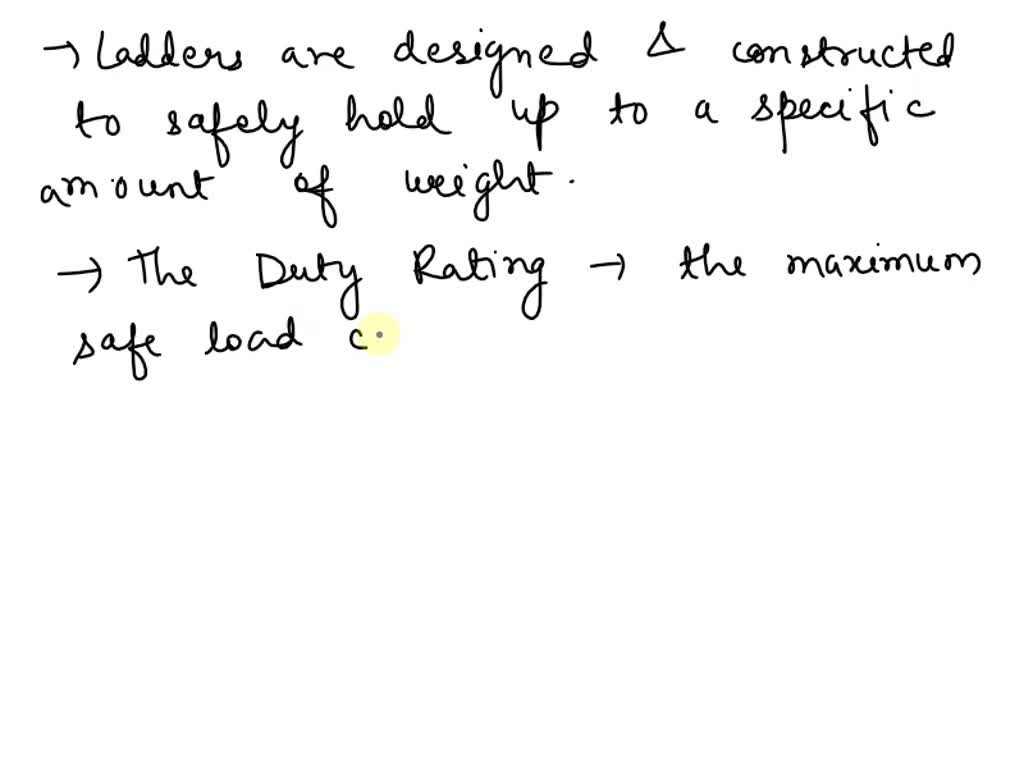 → Ladders are designed & constructed
to safely hold up to a specific
amount of weight.
→ The Duty Rating → the maximum
safe load c